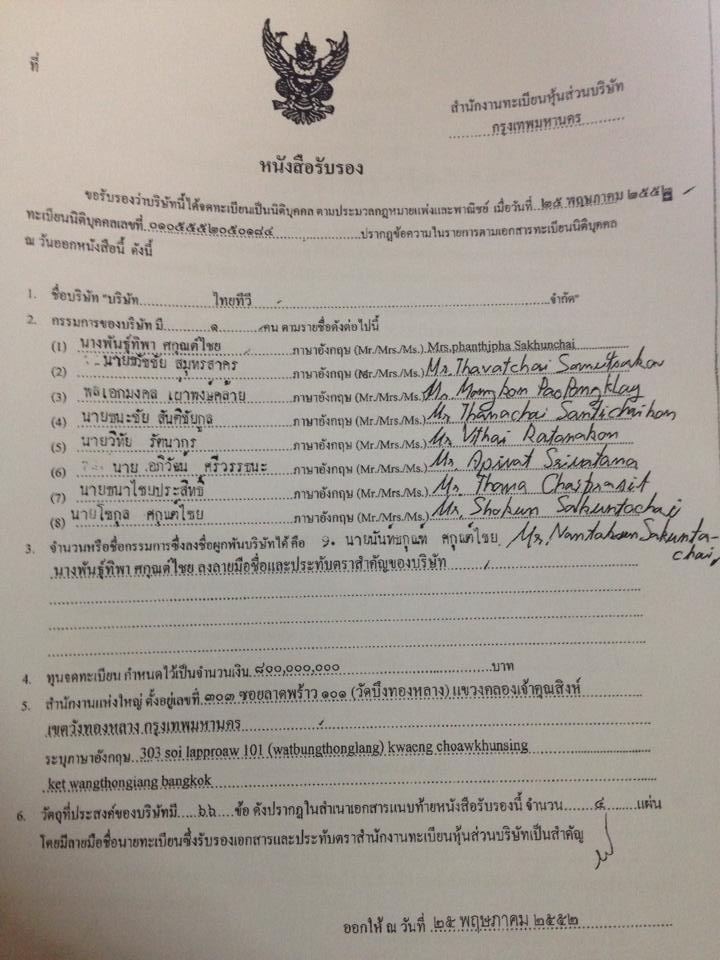 ที่
สำนักงานทะเบียนหุ้นส่วนบริษัท
กรุงเทพมหานคร
หนังสือรับรอง
ขอรับรองว่าบริษัทนี้ได้จดทะเบียนเป็นนิติบุคคล ตามประมวลกฎหมายแพ่งและพาณิชย์ เมื่อวันที่ ๒๕ พฤษภาคม ๒๕๕๒
ทะเบียนนิติบุคคลเลขที่ ๐๑๐๕๕๕๒๐๕๐๑๘๔ ปรากฏข้อความในรายการตามเอกสารทะเบียนนิติบุคคล
ณ วันออกหนังสือนี้ ดังนี้
1. ชื่อบริษัท "บริษัท ไทยทีวี จำกัด"
2. กรรมการของบริษัท มี คน ตามรายชื่อดังต่อไปนี้
(1) นางพันธุ์ทิพา ศกุณต์ไชย ภาษาอังกฤษ (Mr./Mrs./Ms.) Mrs.phanthjpha Sakhunchai
(2) นายธวัชชัย สมุทรสาคร ภาษาอังกฤษ (Mr./Mrs./Ms.) Mr. Thavatchai Samutsakor
(3) พลเอกมงคล เผ่าพงษ์คล้าย ภาษาอังกฤษ (Mr./Mrs./Ms.) Mr. Mongkon PaoPongklay
(4) นายชนะชัย สันติชัยกูล ภาษาอังกฤษ (Mr./Mrs./Ms.) Mr Thanachai Santichaikon
(5) นายวิทัย รัตนากร ภาษาอังกฤษ (Mr./Mrs./Ms.) Mr Vthai Ratanakon
(6) นาย อภิวัฒน์ ศรีวรรธนะ ภาษาอังกฤษ (Mr./Mrs./Ms.) Mr Apivat Srivatana
(7) นายชนาไชยประสิทธิ์ ภาษาอังกฤษ (Mr./Mrs./Ms.) Mr. Thana Chaiprasit
(8) นายโชกุล ศกุณต์ไชย ภาษาอังกฤษ (Mr./Mrs./Ms.) Mr. Shokun Sakuntachai
3. จำนวนหรือชื่อกรรมการซึ่งลงชื่อผูกพันบริษัทได้ คือ ๑. นายนันทกุณท ศกุณต์ไชย Mr. Nantakun Sakunta-
chai
นางพันธุ์ทิพา ศกุณต์ไชย ลงลายมือชื่อและประทับตราสำคัญของบริษัท
4. ทุนจดทะเบียน กำหนดไว้เป็นจำนวนเงิน ๘๐๐,๐๐๐,๐๐๐ บาท
5. สำนักงานแห่งใหญ่ ตั้งอยู่เลขที่ ๓๐๓ ซอยลาดพร้าว ๑๐๑ (วัดบึงทองหลาง) แขวงคลองเจ้าคุณสิงห์
เขตวังทองหลาง กรุงเทพมหานคร
ระบุภาษาอังกฤษ 303 soi lapproaw 101 (watbungthonglang) kwaeng choawkhunsing
ket wangthongiang bangkok
6. วัตถุที่ประสงค์ของบริษัทมี ๖๖ ข้อ ดังปรากฏในสำเนาเอกสารแนบท้ายหนังสือรับรองนี้ จำนวน ๔ แผ่น
โดยมีลายมือชื่อนายทะเบียนซึ่งรับรองเอกสารและประทับตราสำนักงานทะเบียนหุ้นส่วนบริษัทเป็นสำคัญ
ออกให้ ณ วันที่ ๒๕ พฤษภาคม ๒๕๕๒